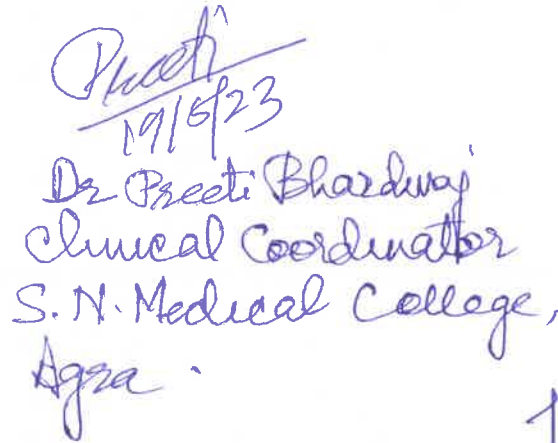 Preeti
19/5/23
Dr Preeti Bhardwaj
Clinical Coordinator
S. N. Medical College,
Agra.